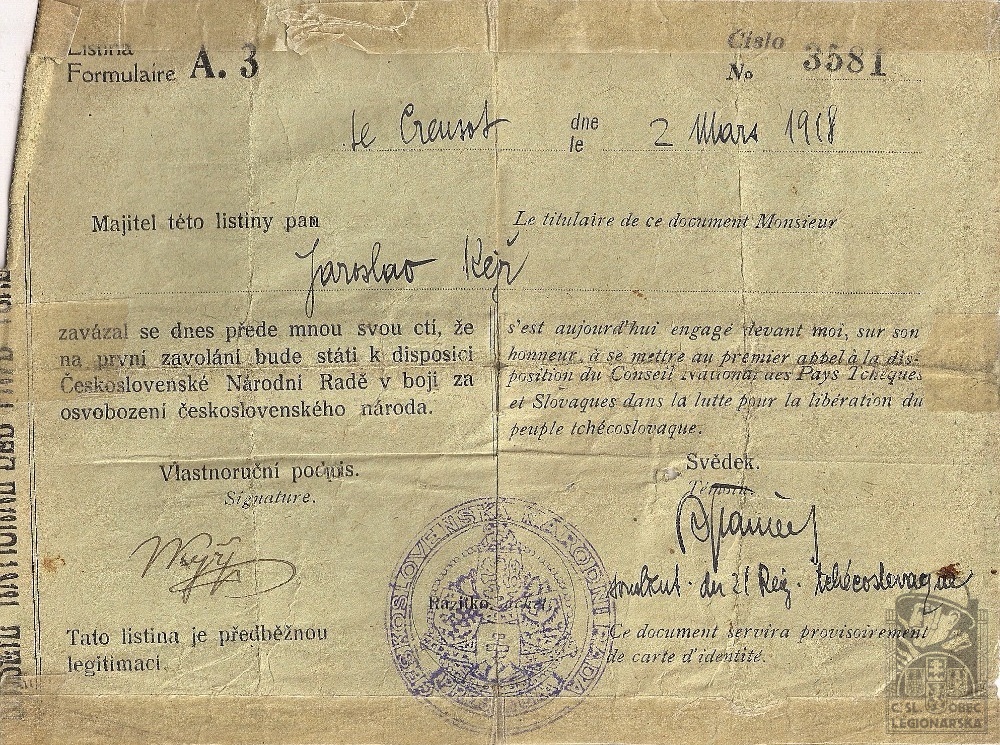 Listina
Formulaire A. 3
Číslo
No 3581
le Creusot dne
le 2 Mars 1918
Majitel této listiny pan
Le titulaire de ce document Monsieur
Jaroslav Kejř
zavázal se dnes přede mnou svou ctí, že
na první zavolání bude státi k disposici
Československé Národní Radě v boji za
osvobození československého národa.
s'est aujourd'hui engagé devant moi, sur son
honneur, à se mettre au premier appel à la dis-
position du Conseil National des Pays Tchèques
et Slovaques dans la lutte pour la libération du
peuple tchécoslovaque.
Vlastnoruční podpis.
Signature.
Svědek.
Témoin.
du 21 Rég. tchécoslovaque
ČESKOSLOVENSKÁ NÁRODNÍ RADA
Razítko.
Tato listina je předběžnou
legitimací.
Ce document servira provisoirement
de carte d'identité.
Č. SL. OBEC
LEGIONÁŘSKÁ